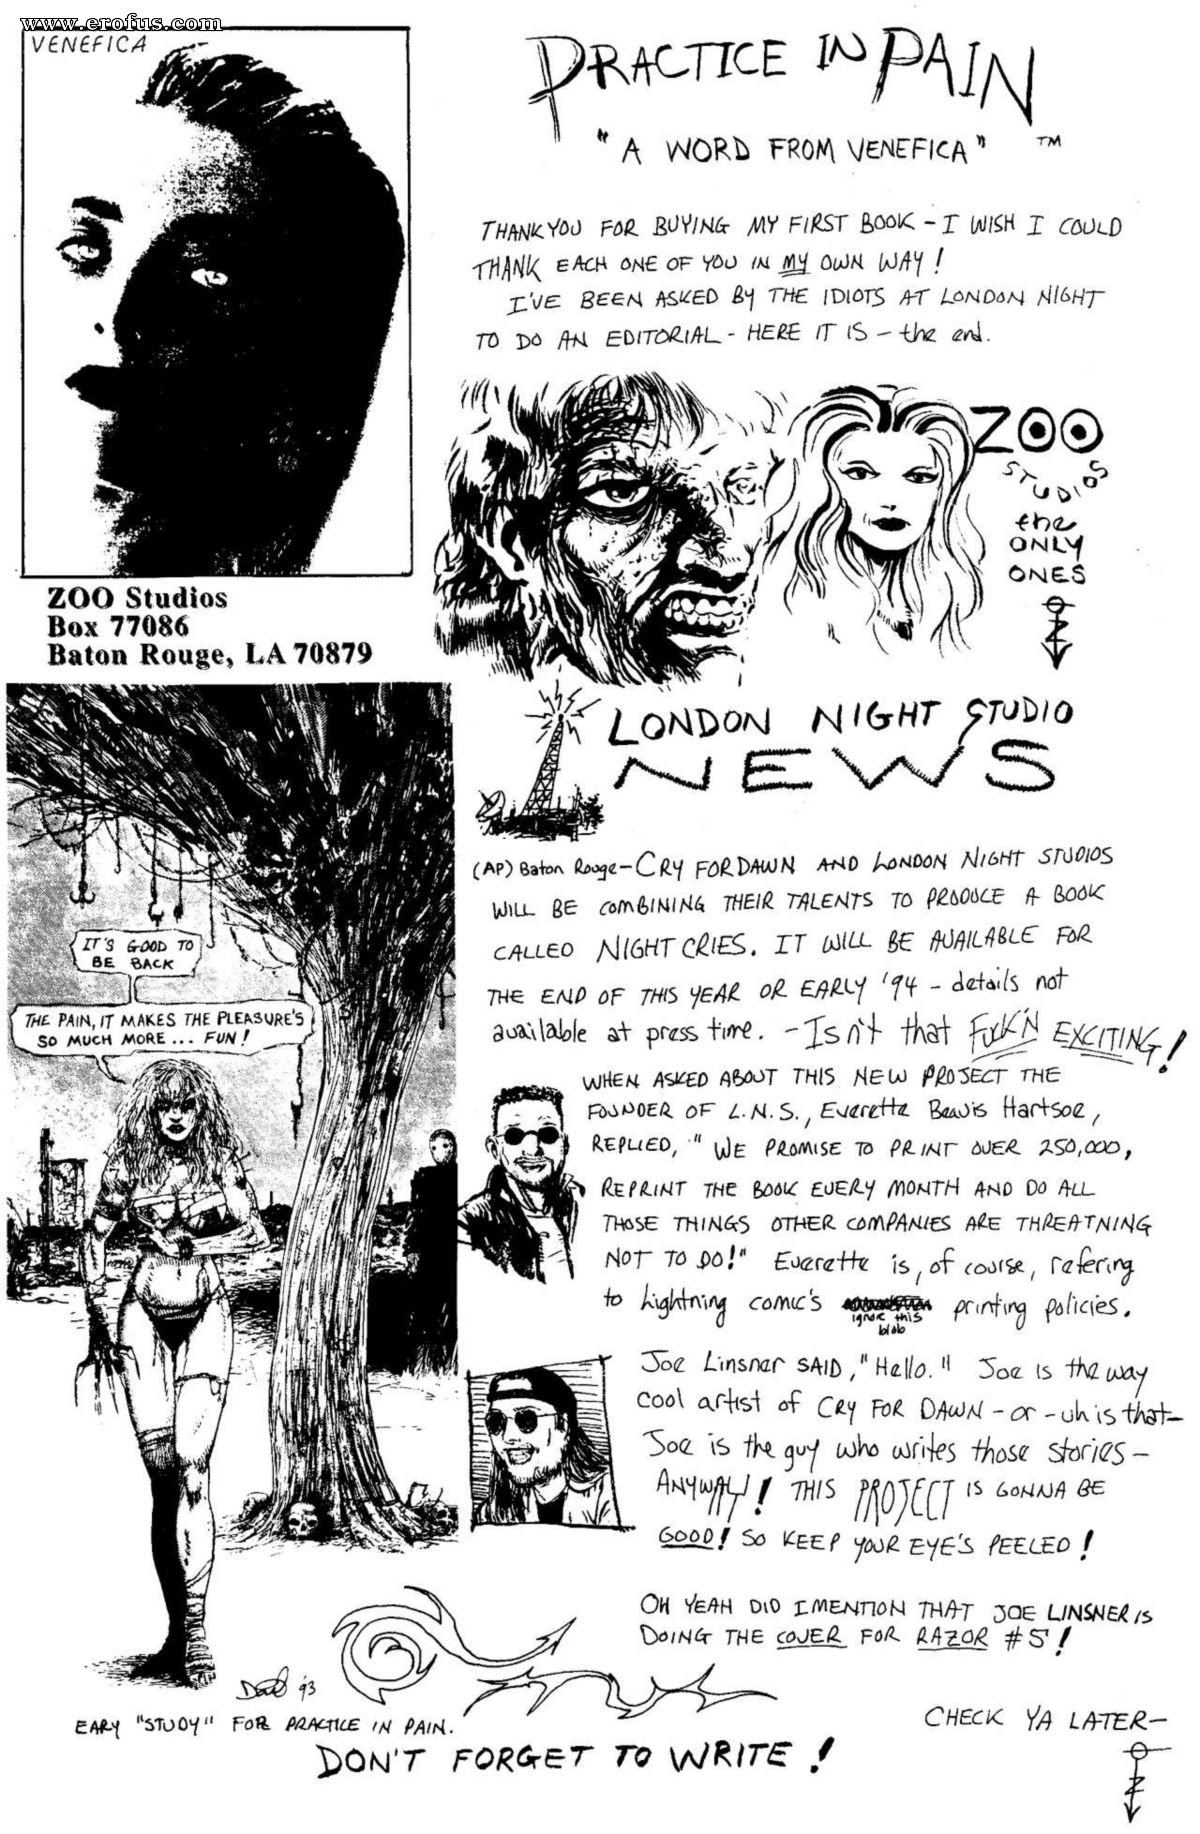 www.erofus.com
VENEFICA
PRACTICE IN PAIN
"A WORD FROM VENEFICA" ™
THANKYOU FOR BUYING MY FIRST BOOK - I WISH I COULD
THANK EACH ONE OF YOU IN MY OWN WAY!
I'VE BEEN ASKED BY THE IDIOTS AT LONDON NIGHT
TO DO AN EDITORIAL - HERE IT IS - the end.
ZOO
STUDIOS
the
ONLY
ONES
Z
ZOO Studios
Box 77086
Baton Rouge, LA 70879
LONDON NIGHT STUDIO
NEWS
(AP) Baton Rouge - CRY FOR DAWN AND LONDON NIGHT STUDIOS
WILL BE COMBINING THEIR TALENTS TO PRODUCE A BOOK
CALLED NIGHT CRIES. IT WILL BE AVAILABLE FOR
THE END OF THIS YEAR OR EARLY '94 - details not
available at press time. - Isn't that FUCK'N EXCITING!
WHEN ASKED ABOUT THIS NEW PROJECT THE
FOUNDER OF L.N.S., Everette Beavis Hartsoe,
REPLIED, "WE PROMISE TO PRINT OVER 250,000,
REPRINT THE BOOK EVERY MONTH AND DO ALL
THOSE THINGS OTHER COMPANIES ARE THREATNING
NOT TO DO!" Everette is, of course, refering
to Lightning comic's printing policies.
ignore this
blob
Joe Linsner SAID, "Hello." Joe is the way
cool artist of CRY FOR DAWN - or - uh is that -
Joe is the guy who writes those stories -
ANYWAY! THIS PROJECT IS GONNA BE
GOOD! SO KEEP YOUR EYE'S PEELED!
OH YEAH DID I MENTION THAT JOE LINSNER IS
DOING THE COVER FOR RAZOR #5!
CHECK YA LATER-
Z
IT'S GOOD TO
BE BACK
THE PAIN, IT MAKES THE PLEASURE'S
SO MUCH MORE... FUN!
'93
EARY "STUDY" FOR PRACTICE IN PAIN.
DON'T FORGET TO WRITE!